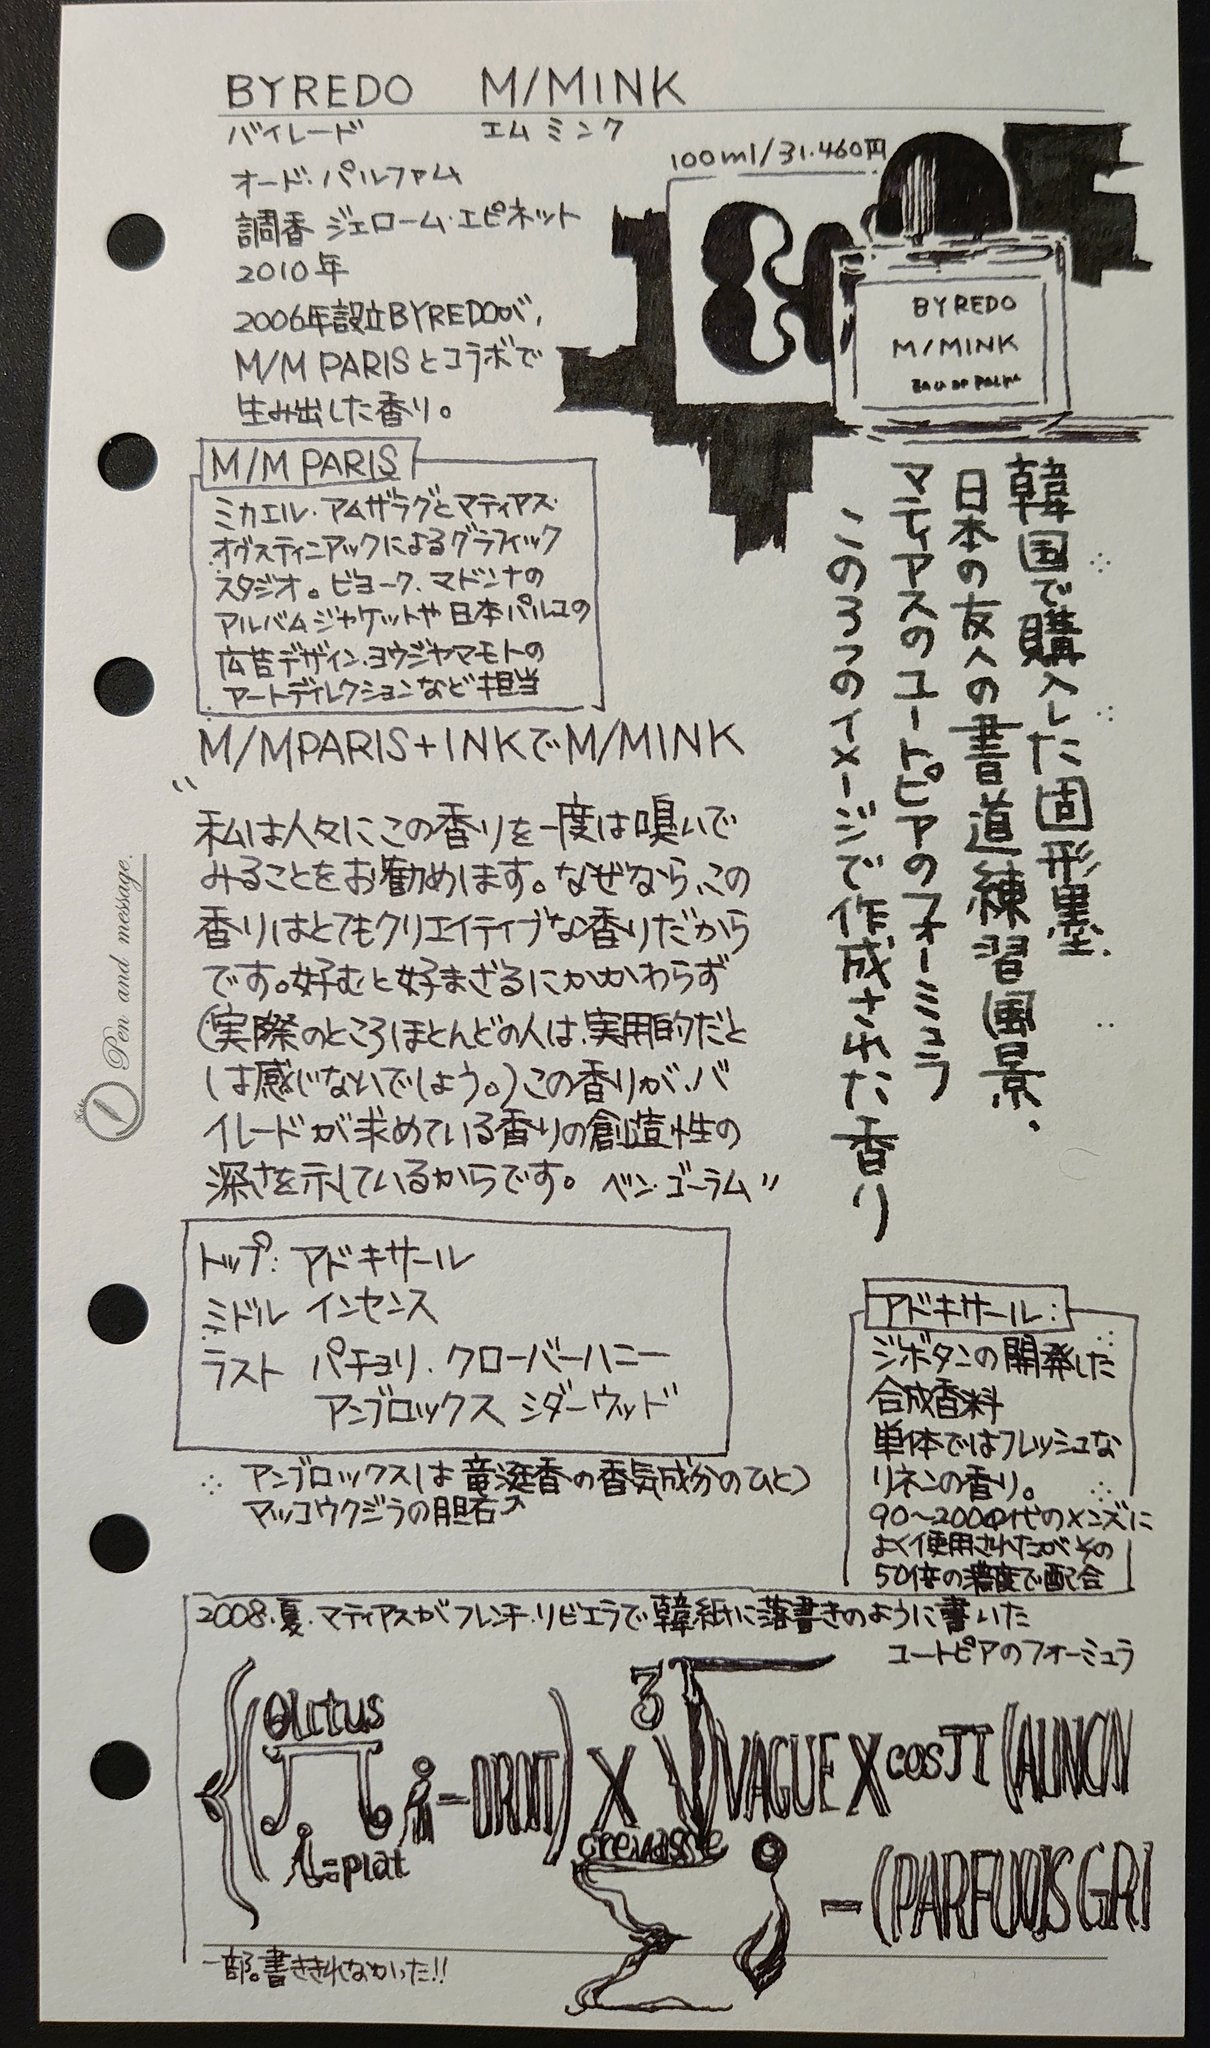 BYREDO M/MINK
バイレード エム ミンク
100ml/31.460円
オード・パルファム
調香 ジェローム・エピネット
2010年
2006年設立BYREDOが、
M/M PARISとコラボで
生み出した香り。
BYREDO
M/MINK
M/M PARIS
ミカエル・アムザラグとマティアス・
オグスティニアックによるグラフィック
スタジオ。ビヨーク、マドンナの
アルバムジャケットや日本パルコの
広告デザイン、ヨウジヤマモトの
アートディレクションなど担当
韓国で購入した固形墨、
日本の友への書道練習風景、
マティアスのユートピアのフォーミュラ
この3つのイメージで作成された香り
M/MPARIS+INKでM/MINK
"私は人々にこの香りを一度は嗅いで
みることをお勧めします。なぜなら、この
香りはとてもクリエイティブな香りだから
です。好むと好まざるにかかわらず
(実際のところほとんどの人は、実用的だと
は感じないでしょう。)この香りが、バ
イレードが求めている香りの創造性の
深さを示しているからです。 ベン・ゴーラム"
Pen and message.
トップ: アドキサール
ミドル インセンス
ラスト パチョリ、クローバーハニー
アンブロックス シダーウッド
アンブロックスは竜涎香の香気成分のひとつ
マッコウクジラの胆石
アドキサール:
ジボダンの開発した
合成香料
単体ではフレッシュな
リネンの香り。
90〜2000年代のメンズに
よく使用されたがその
50倍の濃度で配合
2008.夏.マティアスがフレンチ・リビエラで韓紙に落書きのように書いた
ユートピアのフォーミュラ
-DROIT) X 3√ VAGUE X cosπ (
=plat
-(PARFUMS GRI
一部。書ききれなかった!!